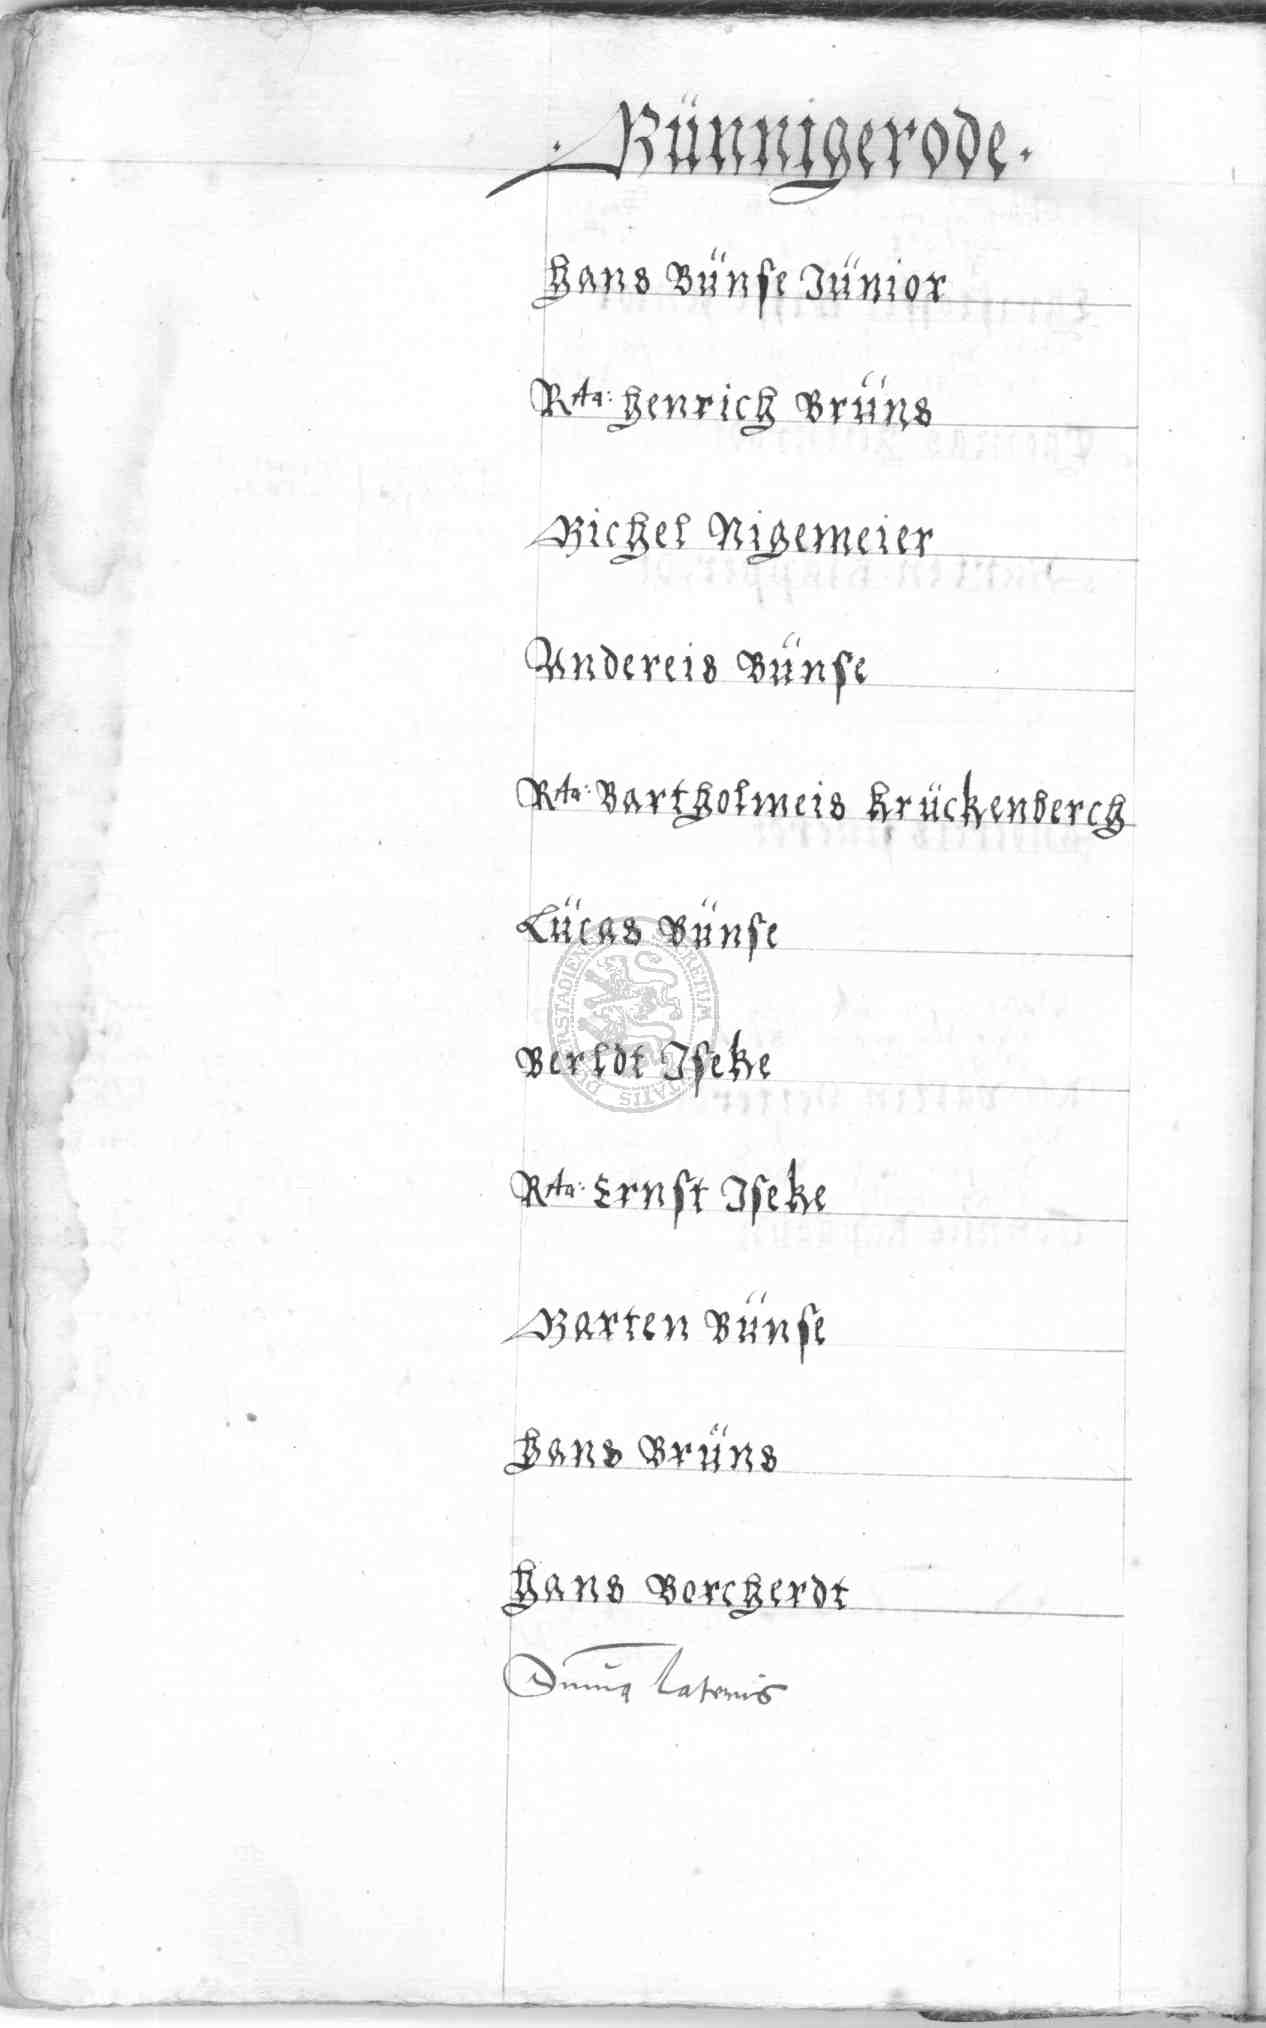 . Bünnigerode .
Hans Bünse Jünior
Rta: Henrich Brüns
Michel Nigemeier
Andereis Bünse
Rta: Bartholmeis Krückenberch
Lücas Bünse
Berldt Iseke
Rta: Ernst Iseke
Marten Bünse
Hans Brüns
Hans Borcherdt
Suma Lateris